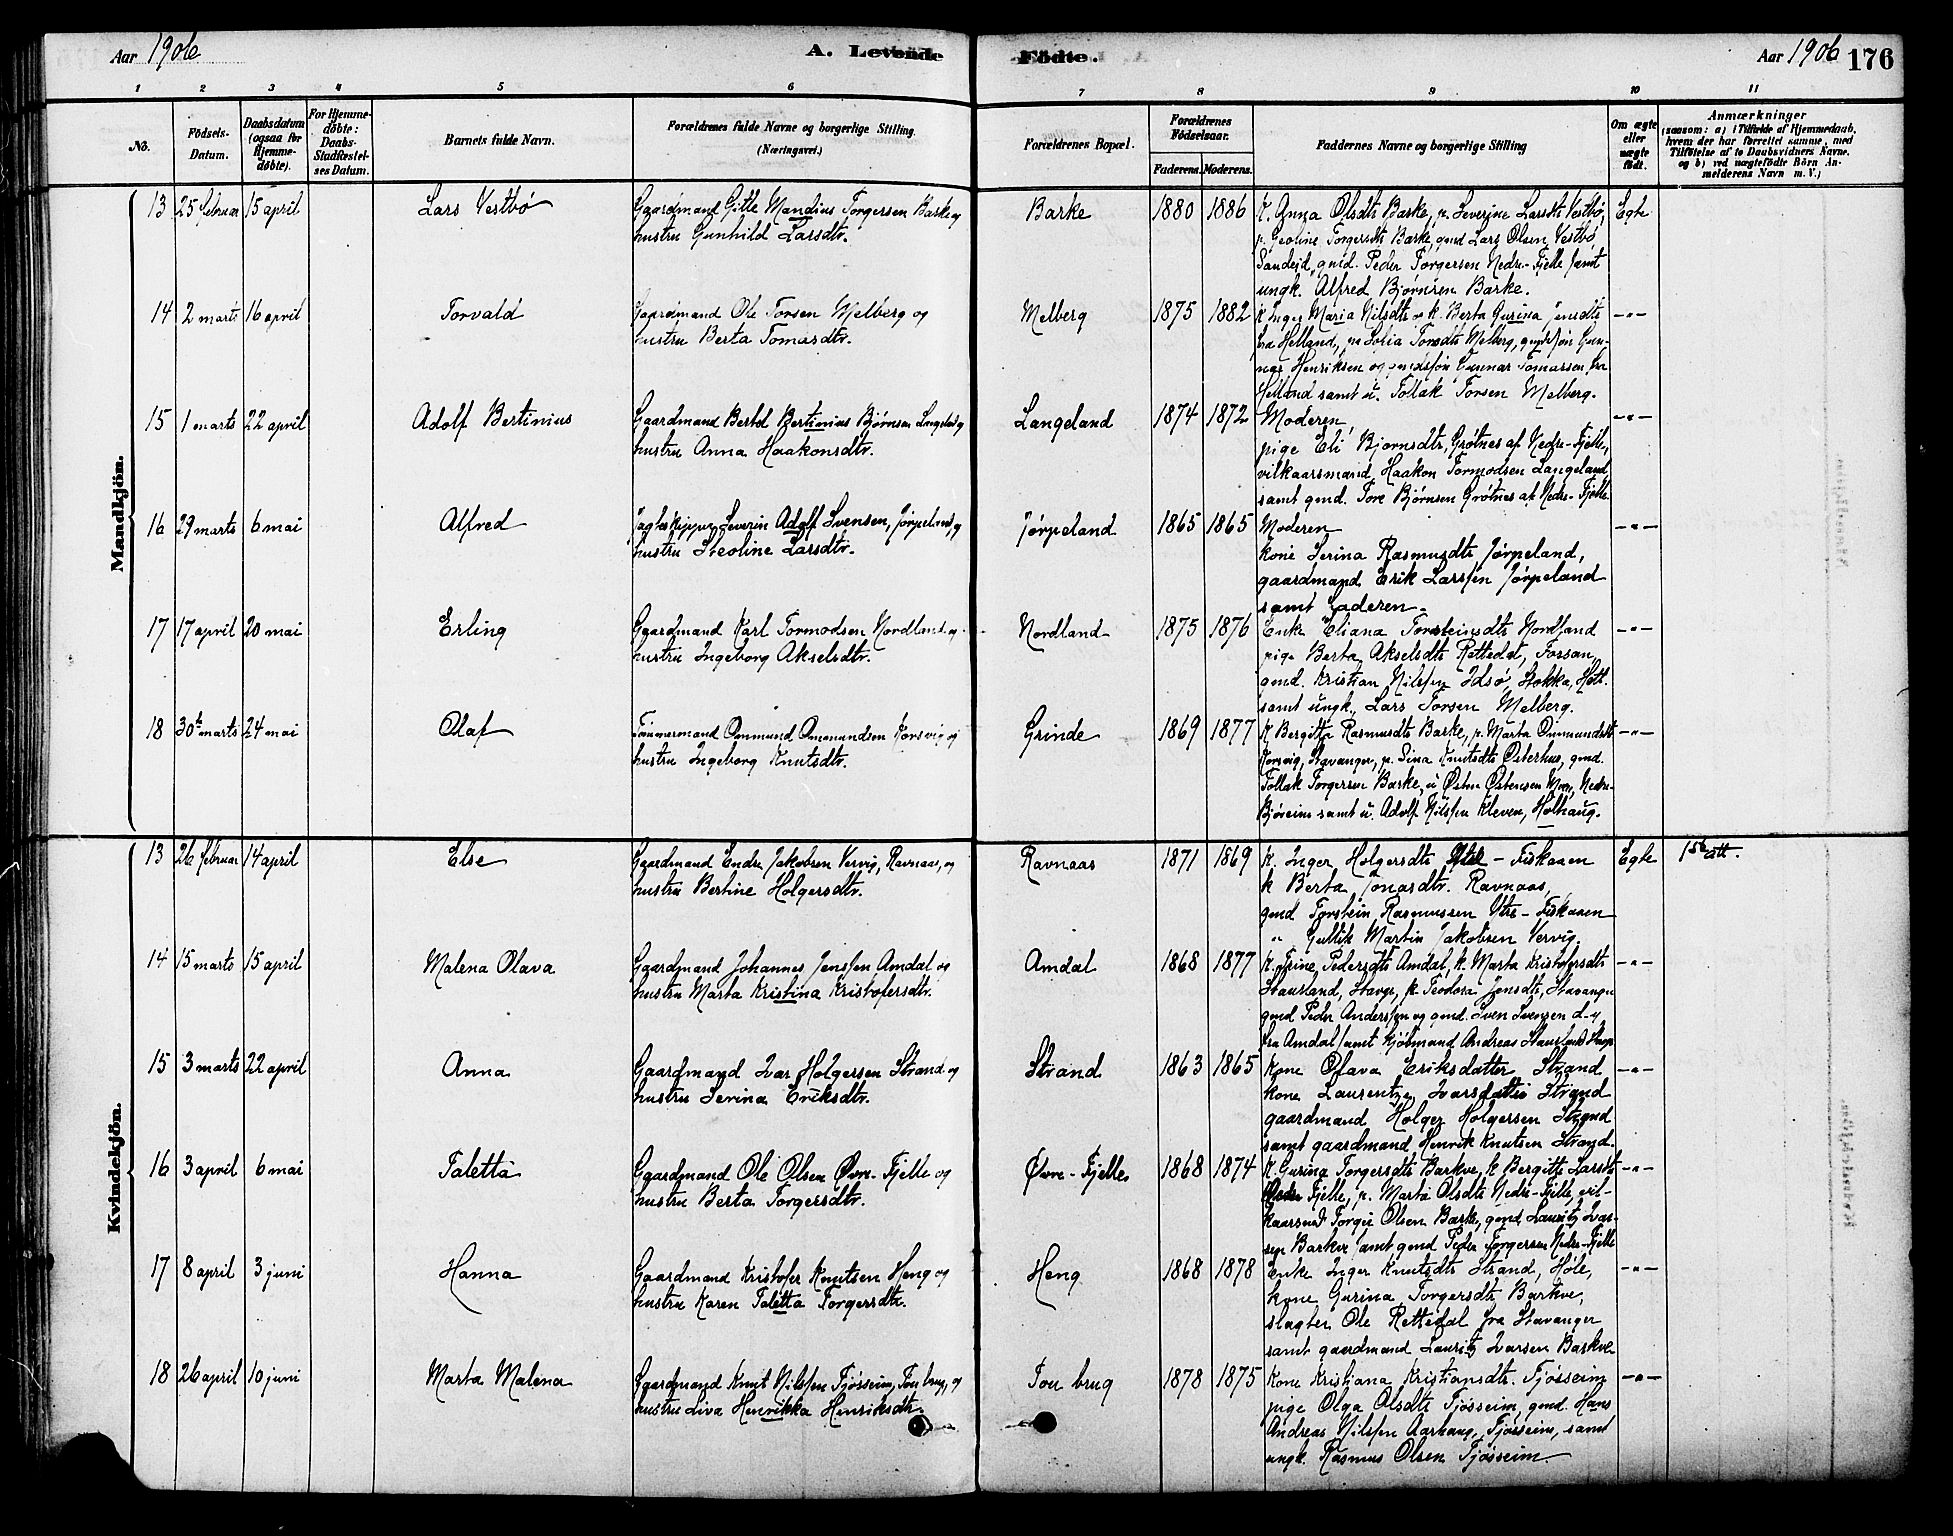 Aar 1906
A. Levende
Fødte.
Aar 1906
176
1 2 3 4 5 6 7 8 9 10 11
No.
Fødsels-
Datum.
Daabsdatum
(ogsaa for
Hjemme-
døbte).
For Hjemme-
døbte:
Daabs-
Stadfæstel-
ses Datum.
Barnets fulde Navn.
Forældrenes fulde Navne og borgerlige Stilling.
(Næringsvei.)
Forældrenes Bopæl.
Forældrenes
Fødselsaar.
Faderens. Moderens.
Faddernes Navne og borgerlige Stilling
Om ægte
eller
uægte
født.
Anmærkninger
(saasom: a) i Tilfælde af Hjemmedaab,
hvem der har forrettet samme, med
Tilføielse af to Daabsvidners Navne,
og b) ved uægtefødte Børn An-
melderens Navn m. V.)
Mandkjøn.
13 25 februar 15 april Lars Vestbø
Gaardmand Gitle Mandius Torgersen Barke og
hustru Gunhild Larsdtr.
Barke 1880 1886
K. Anna Olsdtr Barke, p. Severine Larsdtr Vestbø,
p. Geoline Torgersdtr Barke, gmd Lars Olsen Vestbø
Sandeid, gmd. Peder Torgersen Nedre-Fjelle samt
ungk. Alfred Bjørnsen Barke.
Egte
14 2 marts 16 april Torvald
Gaardmand Ole Torsen Melberg og
hustru Berta Tomasdtr.
Melberg 1875 1882
K Inger Maria Nilsdtr og k. Berta Gurina Jensdtr
fra Helland, p. Sofia Torsdtr Melberg, gmdssøn Gun-
nar Henriksen og gmdssøn Gunnar Tomassen fra
Helland samt u. Tollak Torsen Melberg.
-"-
15 1 marts 22 april Adolf Bertinius
Gaardmand Bertel Bertinius Bjørnsen Langeland og
hustru Anna Haakonsdtr.
Langeland 1874 1872
Moderen,
pige Eli Bjørnsdtr, Grøtnes af Nedre-Fjelle,
vilkaarsmand Haakon Tormodsen Langeland
samt gmd. Tore Bjørnsen Grøtnes af Nedre-Fjelle.
-"-
16 29 marts 6 mai Alfred
Jagteskipper Severin Adolf Svensen, Jørpeland, og
hustru Steoline Larsdtr.
Jørpeland 1865 1865
Moderen
kone Serina Rasmusdtr Jørpeland,
gaardmand Erik Larssen Jørpeland
samt Faderen.
-"-
17 17 april 20 mai Erling
Gaardmand Karl Tormodsen Nordland og
hustru Ingeborg Akselsdtr.
Nordland 1875 1876
Enke Eliana Torsteinsdtr Nordland
pige Berta Akselsdtr Rettedal, Fossan,
gmd. Kristian Nilssen Idsø, Stokka, Hetl.
samt ungk. Lars Torsen Melberg.
-"-
18 30te marts 24 mai Olaf
Tømmermand Ommund Ommundsen Korsvig og
hustru Ingeborg Knutsdtr.
Grinde 1869 1877
K Bergitta Rasmusdtr Barke, p. Marta Ommundsdtr
Korsvig, Stavanger, p. Sina Knutsdtr Østerhus, gmd.
Tollak Torgersen Barke, u Østen Østensen Moen, Nedre-
Bjøreim samt u. Adolf Nilssen Kleven, Holhaug.
-"-
Kvindekjøn.
13 26 februar 14 april Else
Gaardmand Endre Jakobsen Vervig, Ravnaas, og
hustru Bertine Holgersdtr.
Ravnaas 1871 1869
K. Inger Holgersdtr Ytre-Fiskaaen
k Berta Jonasdtr. Ravnaas,
gmd Torstein Rasmussen Ytre-Fiskaaen
" Gullik Martin Jakobsen Vervig.
Egte
14 15 marts 15 april Malena Olava
Gaardmand Johannes Jenssen Amdal og
hustru Marta Kristina Kristofersdtr.
Amdal 1868 1877
K. Trine Pedersdtr Amdal, k. Marta Kristofersdtr
Staurland, Stavgr, p. Teodora Jonsdtr, Stavanger
gmd Peder Anderssen og gmd. Sven Svensen d.y.
fra Amdal samt kjøbmand Andreas Staurland Stavgr
-"-
15 3 marts 22 april Anna
Gaardmand Ivar Holgersen Strand og
hustru Serina Eriksdtr.
Strand 1863 1865
Kone Olava Eriksdatter Strand
kone Laurentze Ivarsdatter Strand
gaardmand Holger Holgersen Strand
samt gaardmand Henrik Knutsen Strand.
-"-
16 3 april 6 mai Taletta
Gaardmand Ole Olsen Øvre-Fjelle og
hustru Berta Torgersdtr.
Øvre-Fjelle 1868 1874
K Gurina Torgersdtr Barkve, k Bergitte Larsdtr
Fjelle, p. Marta Olsdtr Nedre-Fjelle, vil-
kaarsmd Torger Olsen Barke, gmd Lauritz Ivar-
sen Barkve samt gmd Peder Torgersen Nedre-Fjelle
-"-
17 8 april 3 juni Hanna
Gaardmand Kristofer Knutsen Heng og
hustru Karen Taletta Torgersdtr.
Heng 1868 1878
Enke Inger Knutsdtr Strand, Høle,
kone Gurina Torgersdtr Barkve,
slagter Ole Rettedal fra Stavanger
samt gaardmand Lauritz Ivarsen Barkve
-"-
18 26 april 10 juni Marta Malena
Gaardmand Knut Nilssen Tjøsseim, Tou brug, og
hustru Liva Henrikka Henriksdtr.
Tou brug 1878 1875
Kone Kristiana Kristiansdtr. Tjøsseim
pige Olga Olsdtr Tjøsseim, gmd. Hans
Andreas Nilssen Aarhaug, Tjøsseim, samt
ungk. Rasmus Olsen Tjøsseim.
-"-